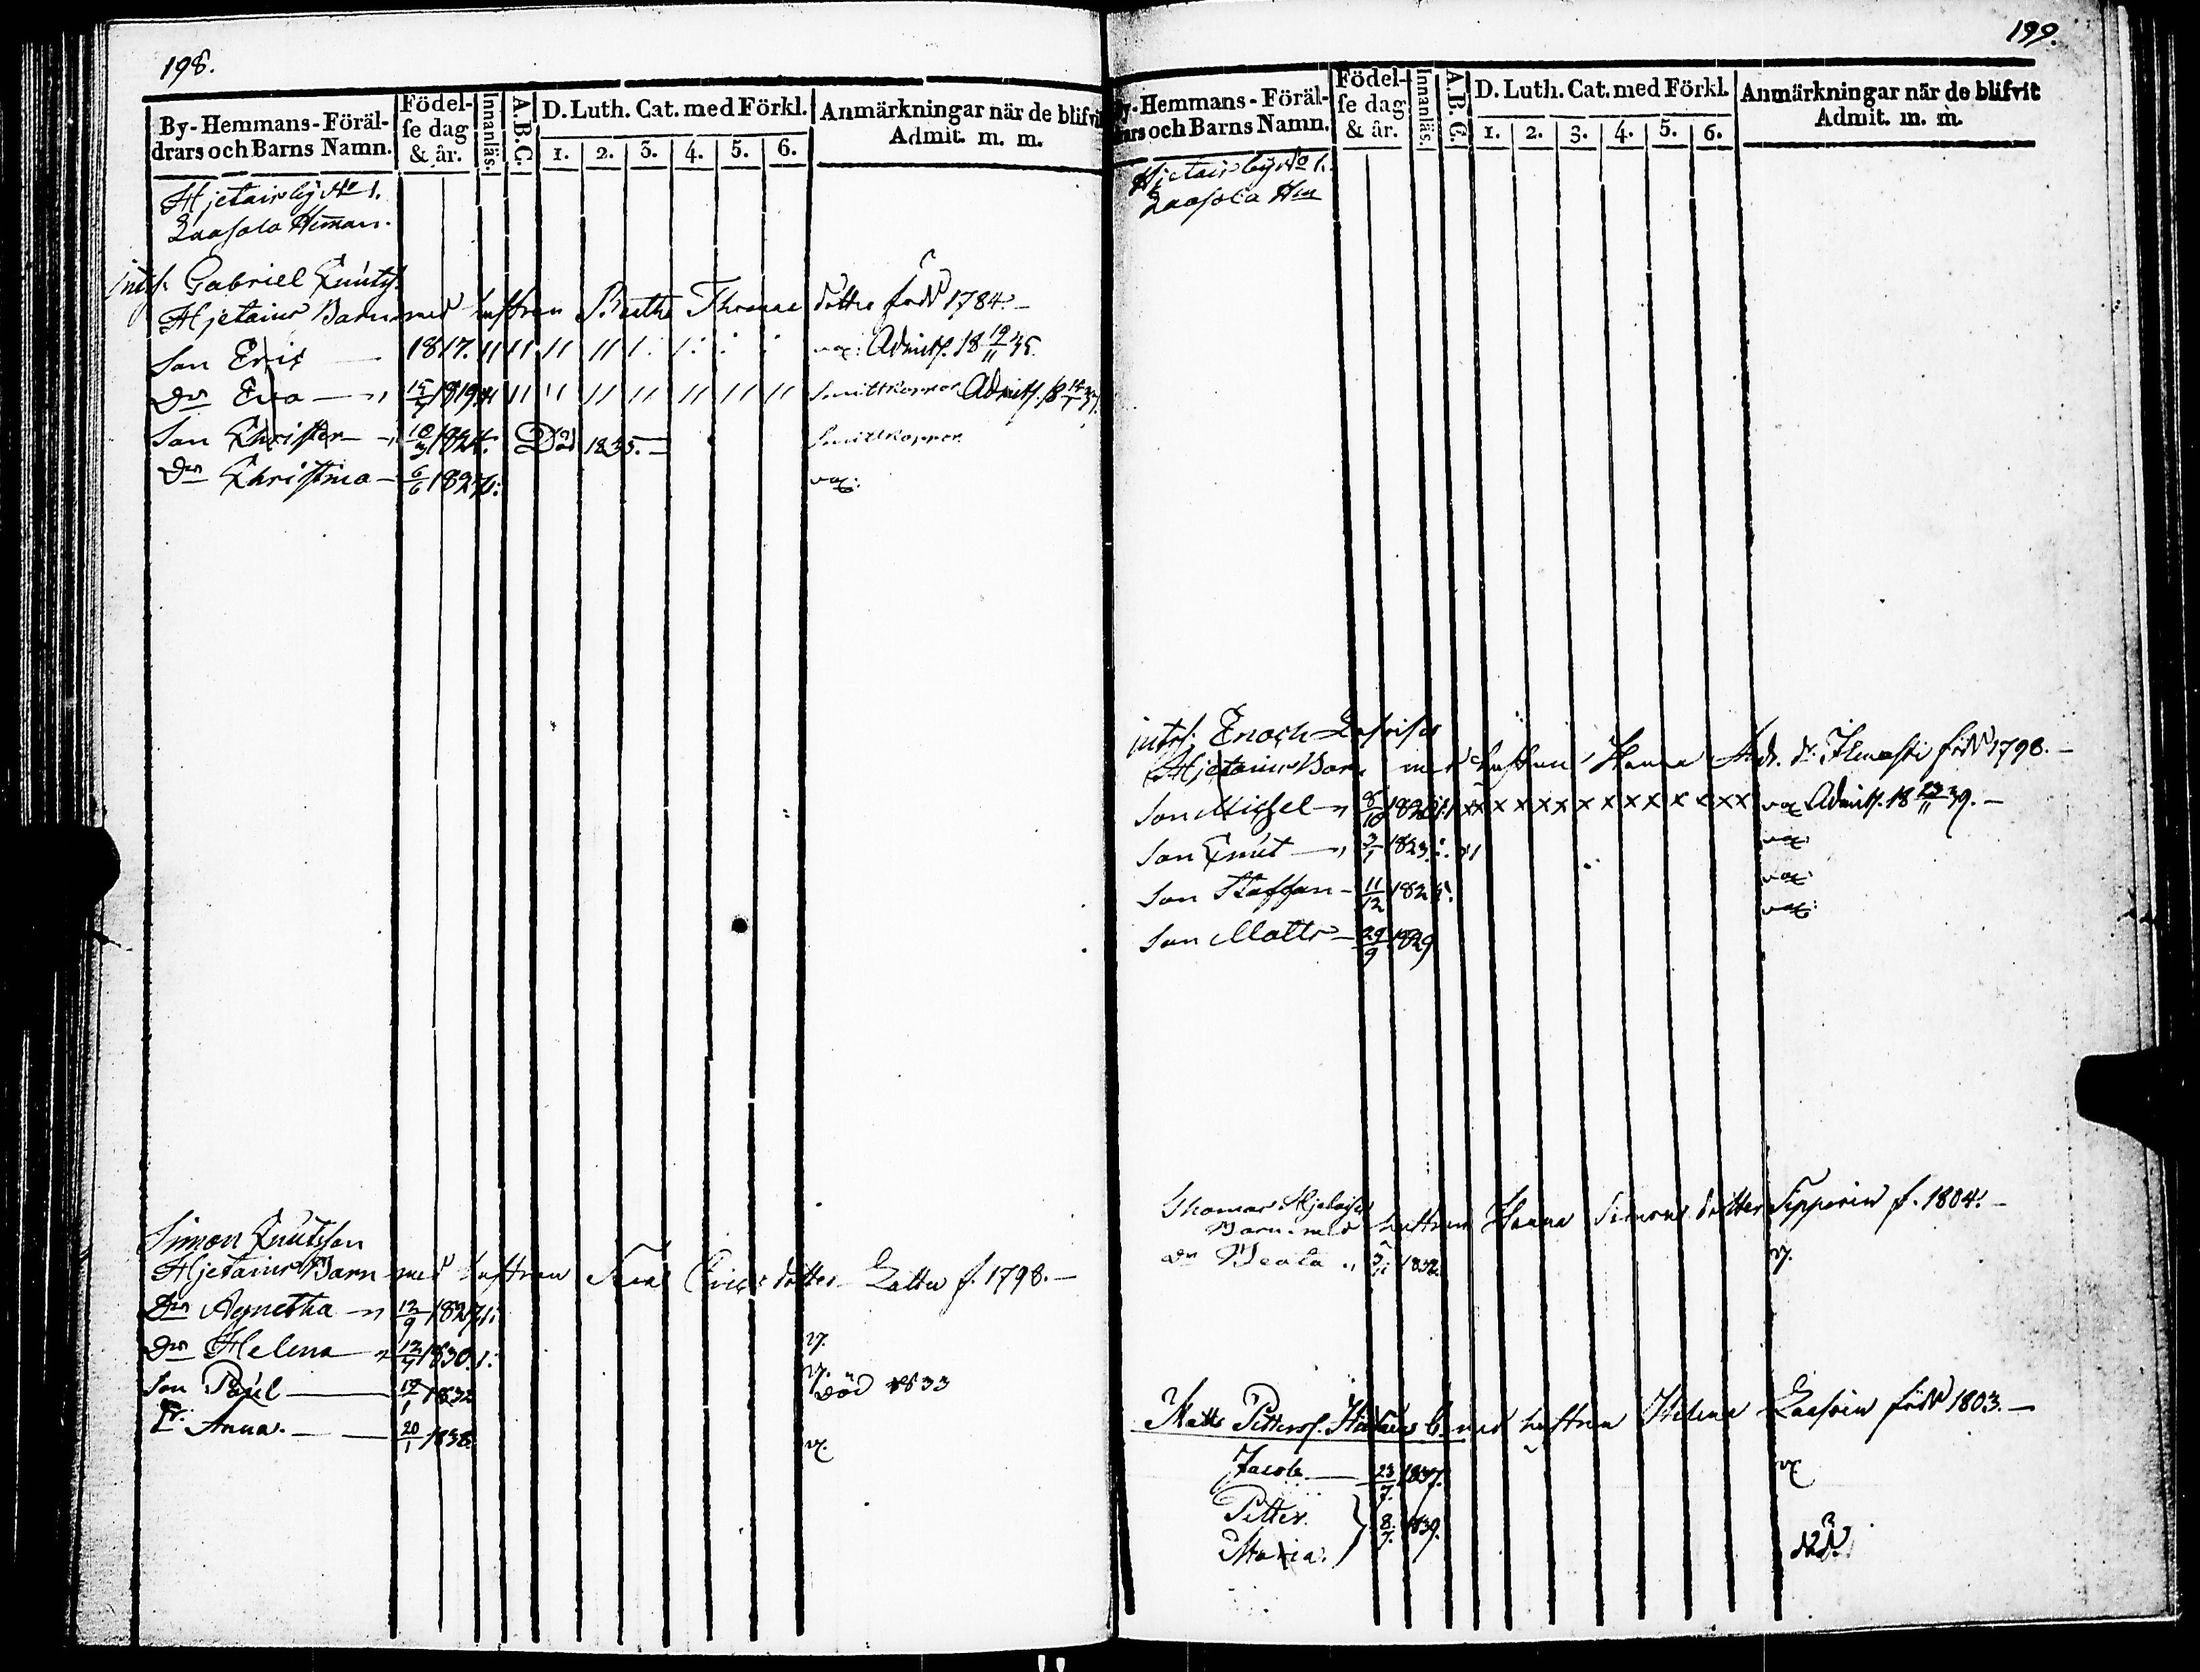 198.
By-Hemmans-Föräl-
drars och Barns Namn.
Födel-
se dag
& år.
Innanläs.
A.B.C.
D. Luth. Cat. med Förkl.
1. 2. 3. 4. 5. 6.
Anmärkningar när de blifvit
Admit. m. m.
Hjetais by No 1.
Laasola Heman.
Gabriel Knuts
Hjetains Barn med hustrun Beatha Thomae dotter född 1784.
Son Eric 1817. vac: Admitt. 18 19/11 35.
Dr Eva 15/7 1819 Smittkoppor Admitt. 18
Son Christer 10/3 1824. Död 1835. Smittkoppor
Dr Christina 6/6 1827 vac:
Simon Knutsson
Hjetains Barn med hustrun Erics dotter f. 1798.
Dr Agnetha 12/9 1827 v.
Dr Helena 1830. v.
Son Paul 1832 död 1833
Dr. Anna. 20/1 1838. v.
199.
By-Hemmans-Föräl-
drars och Barns Namn.
Födel-
se dag
& år.
Innanläs.
A.B.C.
D. Luth. Cat. med Förkl.
1. 2. 3. 4. 5. 6.
Anmärkningar när de blifvit
Admit. m. m.
Hjetais by No 1.
Laasola Hem
Enoch
Hjetains Barn med hustrun Hanna Andr. dr. född 1798.
Son Michel 8/10 1820 x x x x x x x x x x x x vac Admitt. 18 23/11 39.
Son Knut 3/1 1823. vac.
Son Staffan 11/12 182 vac.
Son Matts 29/9 1829 vac:
Thomas Hjetais
Barn med hustrun Hanna Simons dotter f. 1804.
Dr Beata 1832. v.
Matts Petterss. Hietains B. med hustrun Helena född 1803.
Jacob 23/7. 1837. v
Petter. } 8/7. 1839.
Maria.